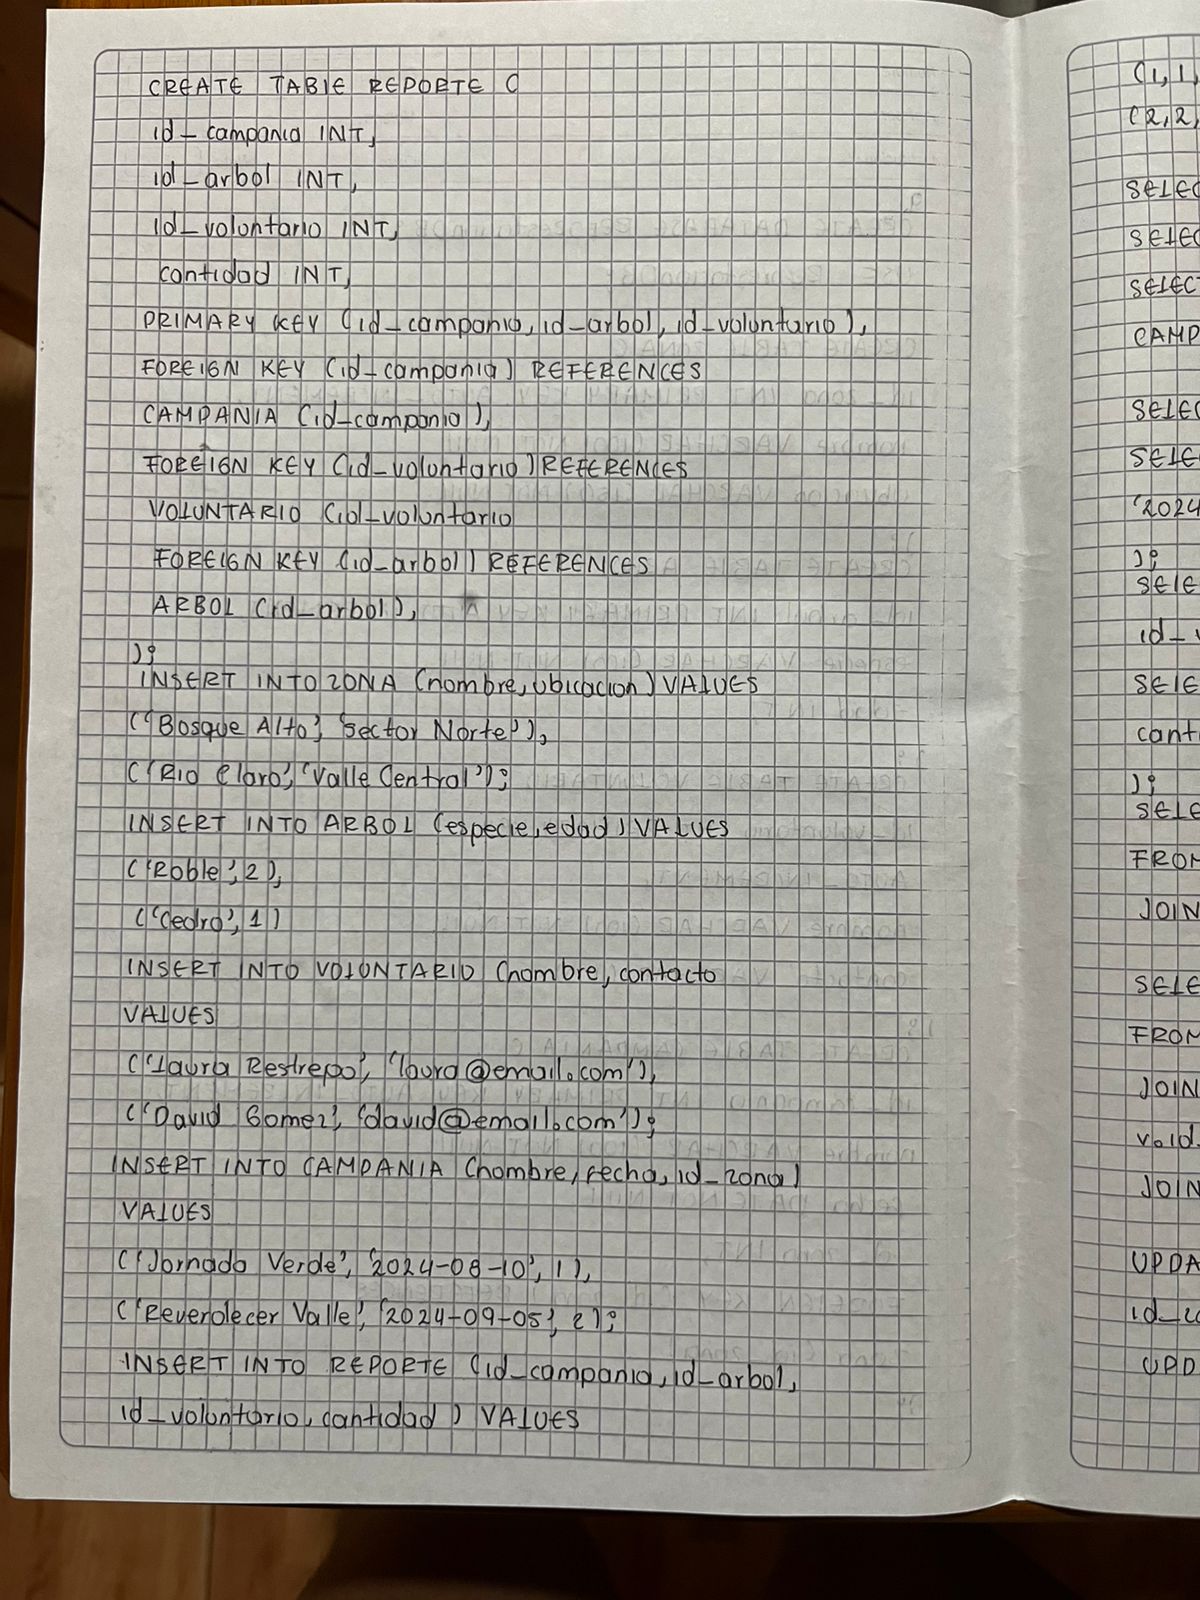 CREATE TABLE REPORTE (
id_campania INT,
id_arbol INT,
id_voluntario INT,
cantidad INT,
PRIMARY KEY (id_campania, id_arbol, id_voluntario),
FOREIGN KEY (id_campania) REFERENCES
CAMPANIA (id_campania),
FOREIGN KEY (id_voluntario) REFERENCES
VOLUNTARIO (id_voluntario
FOREIGN KEY (id_arbol) REFERENCES
ARBOL (id_arbol),
);
INSERT INTO ZONA (nombre, ubicacion) VALUES
('Bosque Alto', 'Sector Norte'),
('Rio Claro', 'Valle Central');
INSERT INTO ARBOL (especie, edad) VALUES
('Roble', 2),
('Cedro', 1)
INSERT INTO VOLUNTARIO (nombre, contacto
VALUES
('Laura Restrepo', 'laura@email.com'),
('David Gomez', 'david@email.com');
INSERT INTO CAMPANIA (nombre, fecha, id_zona)
VALUES
('Jornada Verde', '2024-08-10', 1),
('Reverdecer Valle', '2024-09-05', 2);
INSERT INTO REPORTE (id_campania, id_arbol,
id_voluntario, cantidad) VALUES
(1, 1,
(2, 2,
SELEC
SELEC
SELECT
CAMP
SELEC
SELEC
'2024
);
SELE
id_v
SELE
cant
);
SELE
FROM
JOIN
SELE
FROM
JOIN
vo.id
JOIN
UPDA
id_ca
UPD